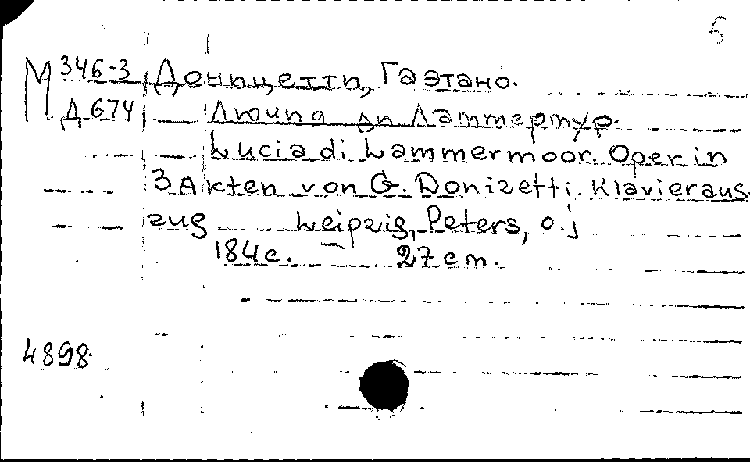 5
М 346-3 Доницетти, Гаэтано.
Д 674 Лючия ди Ламмермур.
Lucia di Lammermoor. Oper in
3 Akten von G. Donizetti. Klavieraus
zug Leipzig, Peters, o.j
184 с. 27 cm.
4898